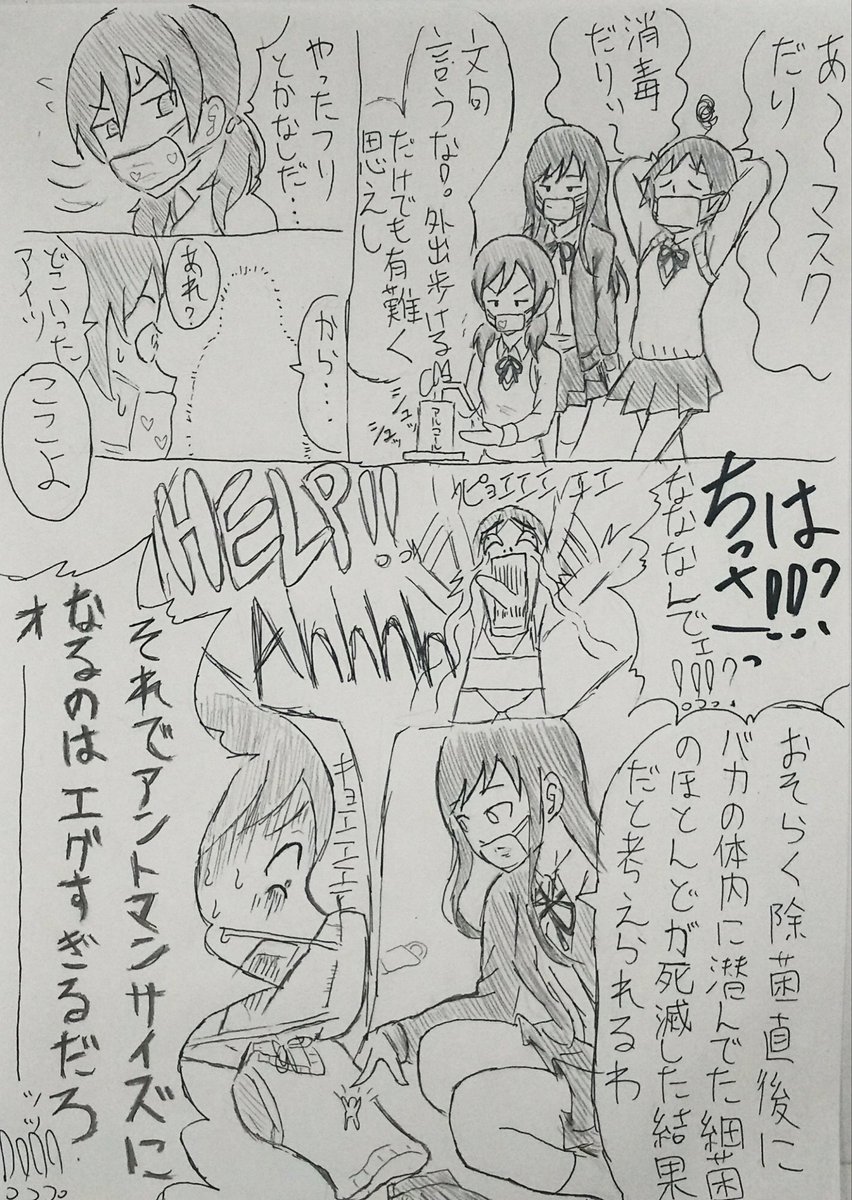 あ〜マスク
だり〜
消毒
だりぃ〜
文句
言うな!!。外出歩ける
だけでも有難く
思えし
アルコール
シュッ
シュッ
やったフリ
とかなしだ…
から…
あれ?
どこいった
アイツ
ここよ
は!!!?
ちっさーっ!!!…
なななんでェ!!!!?
ピョエエエエエ
HELP!!
Ahhhh
おそらく除菌直後に
バカの体内に潜んでた細菌
のほとんどが死滅した結果
だと考えられるわ
キョエエエエエ
それでアントマンサイズに
なるのはエグすぎるだろ
オ――
ッッ